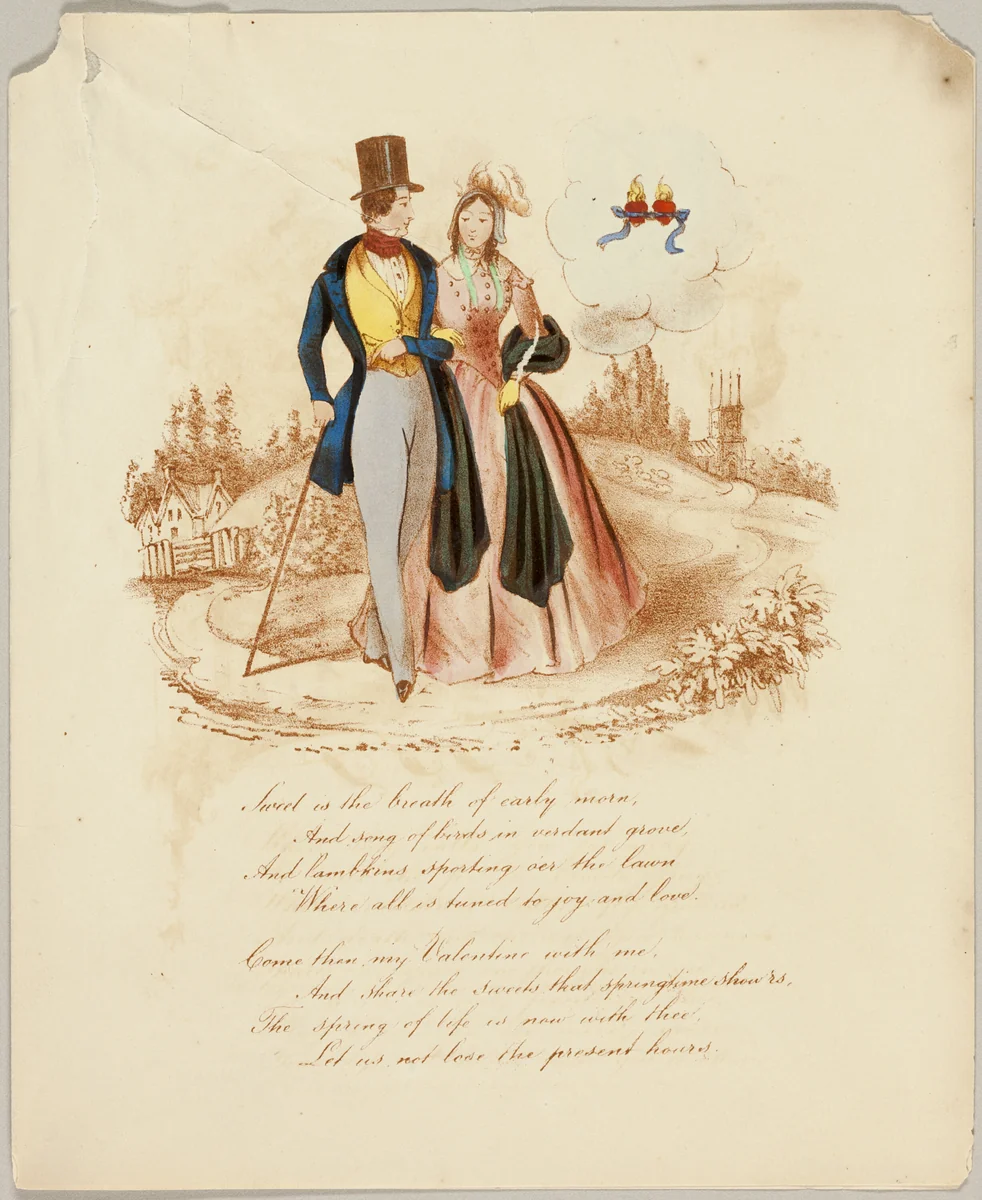 Sweet is the breath of early morn,
And song of birds in verdant grove,
And lambkins sporting oer the lawn
Where all is tuned to joy and love.
Come then my Valentine with me,
And share the sweets that springtime show'rs,
The spring of life is now with thee,
Let us not lose the present hours.